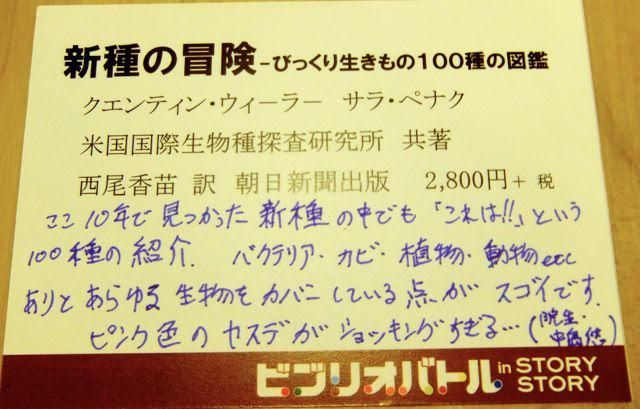 新種の冒険-びっくり生きもの100種の図鑑
クエンティン・ウィーラー サラ・ペナク
米国国際生物種探査研究所 共著
西尾香苗 訳 朝日新聞出版 2,800円+ 税
ここ10年で見つかった新種の中でも「これは!!」という
100種の紹介. バクテリア・カビ・植物・動物etc
ありとあらゆる生物をカバーしている点がスゴイです.
ピンク色のヤスデがショッキングすぎる…(院生・
中島悠)
ビブリオバトル in STORY
STORY